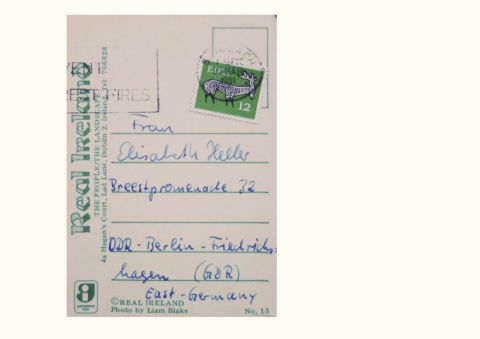 Real Ireland
THE PEOPLE/THE LANDSCAPE
4a Hagan's Court, Lad Lane, Dublin 2. Ireland. Tel: 766828
FIRES
12
Frau
Elisabeth Heller
Breestpromenade 32
DDR-Berlin-Friedrichs-
hagen (GDR)
East-Germany
© REAL IRELAND
Photo by Liam Blake
No. 13